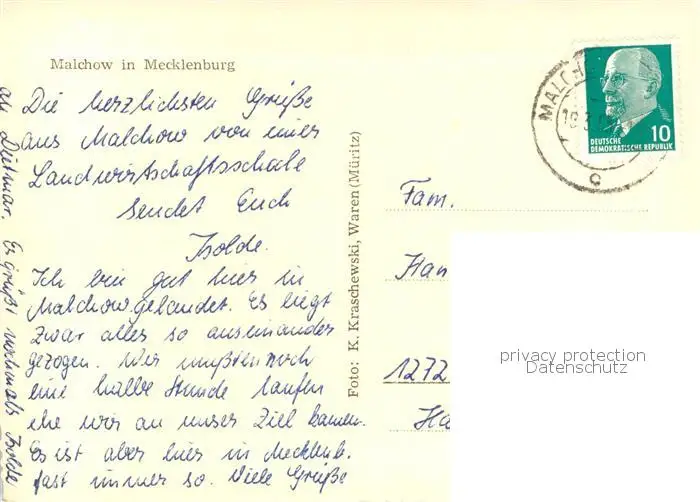 Malchow in Mecklenburg
Die herzlichsten Grüße
aus Malchow von einer
Landwirtschaftsschule
sendet Euch
Isolde.
Ich bin gut hier in
Malchow gelandet. Es liegt
zwar alles so auseinander
gezogen. Wir mußten noch
eine halbe Stunde laufen
ehe wir an unser Ziel kamen.
Es ist aber hier in Mecklenb.
fast immer so. Viele Grüße
an Dietmar. Es grüßt nochmals Isolde
Foto: K. Kraschewski, Waren (Müritz)
MALCH
10
DEUTSCHE
DEMOKRATISCHE REPUBLIK
c
Fam.
Han
1272
privacy protection
Datenschutz